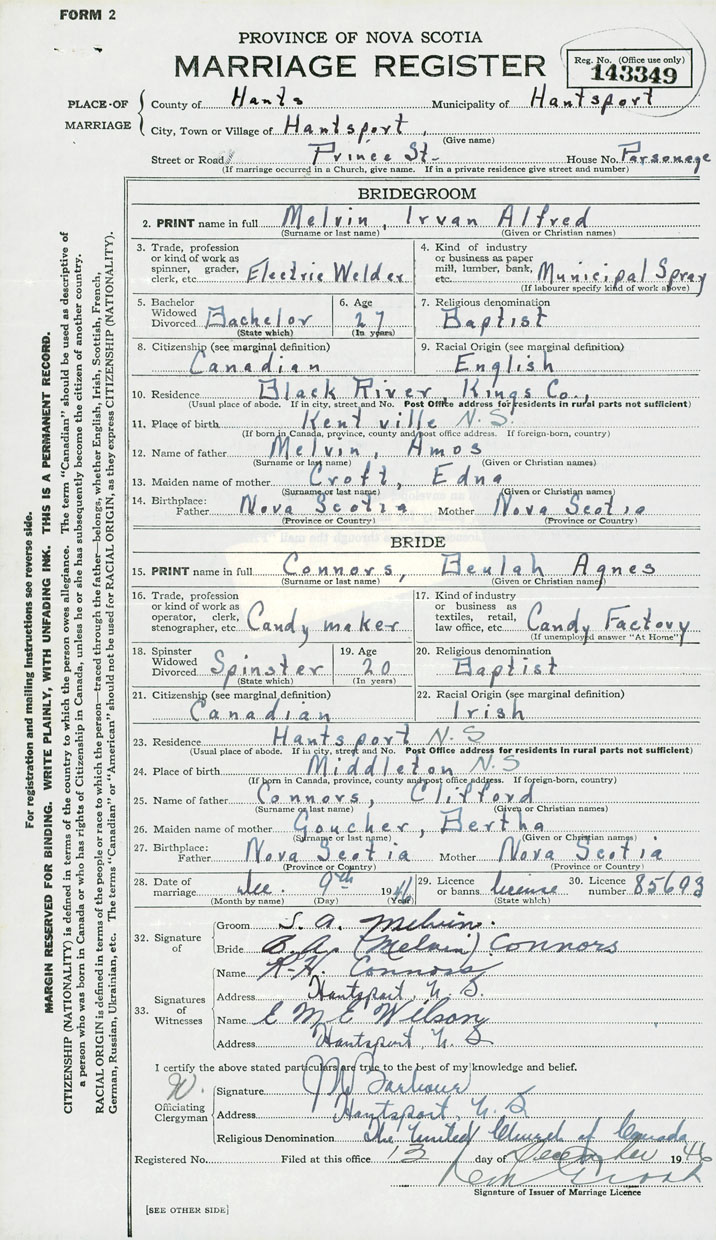 FORM 2
PROVINCE OF NOVA SCOTIA
MARRIAGE REGISTER
Reg. No. (Office use only)
143349
PLACE OF MARRIAGE
County of Hants Municipality of Hantsport
City, Town or Village of Hantsport,
(Give name)
Street or Road Prince St- House No. Parsonege
(If marriage occurred in a Church, give name. If in a private residence give street and number)
BRIDEGROOM
2. PRINT name in full Melvin, Irvan Alfred
(Surname or last name) (Given or Christian names)
3. Trade, profession or kind of work as spinner, grader, clerk, etc. Electric Welder
4. Kind of industry or business as paper mill, lumber, bank, etc. Municipal Spray
(If labourer specify kind of work above)
5. Bachelor Widowed Divorced Bachelor
(State which)
6. Age 27
(In years)
7. Religious denomination
Baptist
8. Citizenship (see marginal definition)
Canadian
9. Racial Origin (see marginal definition)
English
10. Residence Black River, Kings Co.,
(Usual place of abode. If in city, street and No. Post Office address for residents in rural parts not sufficient)
11. Place of birth Kentville N.S.
(If born in Canada, province, county and post office address. If foreign-born, country)
12. Name of father Melvin, Amos
(Surname or last name) (Given or Christian names)
13. Maiden name of mother Croft, Edna
(Surname or last name) (Given or Christian names)
14. Birthplace: Father Nova Scotia Mother Nova Scotia
(Province or Country) (Province or Country)
BRIDE
15. PRINT name in full Connors, Beulah Agnes
(Surname or last name) (Given or Christian names)
16. Trade, profession or kind of work as operator, clerk, stenographer, etc. Candy maker
17. Kind of industry or business as textiles, retail, law office, etc. Candy Factory
(If unemployed answer "At Home")
18. Spinster Widowed Divorced Spinster
(State which)
19. Age 20
(In years)
20. Religious denomination
Baptist
21. Citizenship (see marginal definition)
Canadian
22. Racial Origin (see marginal definition)
Irish
23. Residence Hantsport N.S
(Usual place of abode. If in city, street and No. Post Office address for residents in rural parts not sufficient)
24. Place of birth Middleton N.S
(If born in Canada, province, county and post office address. If foreign-born, country)
25. Name of father Connors, Clifford
(Surname or last name) (Given or Christian names)
26. Maiden name of mother Goucher, Bertha
(Surname or last name) (Given or Christian names)
27. Birthplace: Father Nova Scotia Mother Nova Scotia
(Province or Country) (Province or Country)
28. Date of marriage Dec. 9th 1946
(Month by name) (Day) (Year)
29. Licence or banns license
(State which)
30. Licence number 85693
32. Signature of
Groom A. Melvin.
Bride B.A. (Melvin) Connors
33. Signatures of Witnesses
Name Connors
Address Hantsport, N.S.
Name E M E Wilson
Address Hantsport, N.S
I certify the above stated particulars are true to the best of my knowledge and belief.
W.
Officiating Clergyman
Signature Barbour
Address Hantsport, N.S
Religious Denomination The United Church of Canada
Registered No. Filed at this office 13 day of December 1946
Signature of Issuer of Marriage Licence
[SEE OTHER SIDE]
For registration and mailing instructions see reverse side.
MARGIN RESERVED FOR BINDING. WRITE PLAINLY, WITH UNFADING INK. THIS IS A PERMANENT RECORD.
CITIZENSHIP (NATIONALITY) is defined in terms of the country to which the person owes allegiance. The term "Canadian" should be used as descriptive of
a person who was born in Canada or who has rights of Citizenship in Canada, unless he or she has subsequently become the citizen of another country.
RACIAL ORIGIN is defined in terms of the people or race to which the person—traced through the father—belongs, whether English, Irish, Scottish, French,
German, Russian, Ukrainian, etc. The terms "Canadian" or "American" should not be used for RACIAL ORIGIN, as they express CITIZENSHIP (NATIONALITY).